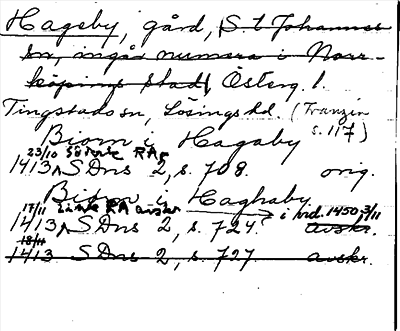 Hageby, gård, S:t Johannes
sn, ingår numera i Norr-
köpings stad, Österg. l.
Tingstads sn, Lösings hd. (Franzén
s. 117)
Biorn i Hagaby
23/10 RAp
1413 SDns 2, s. 708. orig.
Biorn i Haghaby
17/11 RA avskr i hd. 1450, 3/11
1413 SDns 2, s. 724. avskr.
18/11
1413 SDns 2, s. 727. avskr.